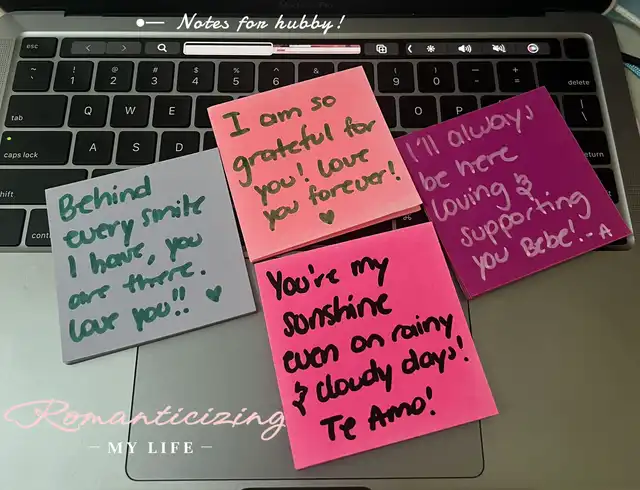 Notes for hubby!
esc
~
`
!
1
@
2
#
3
$
4
%
5
^
6
&
(
9
)
0
-
+
=
delete
tab
Q
W
E
O
P
|
\
caps lock
A
S
D
return
shift
I am so
grateful for
you! Love
you forever!
I'll always
be here
loving &
supporting
you Bebe! - A
Behind
every smile
I have, you
are there.
Love you!!
You're my
sonshine
even on rainy
& cloudy days!
Te Amo!
Romanticizing
MY LIFE